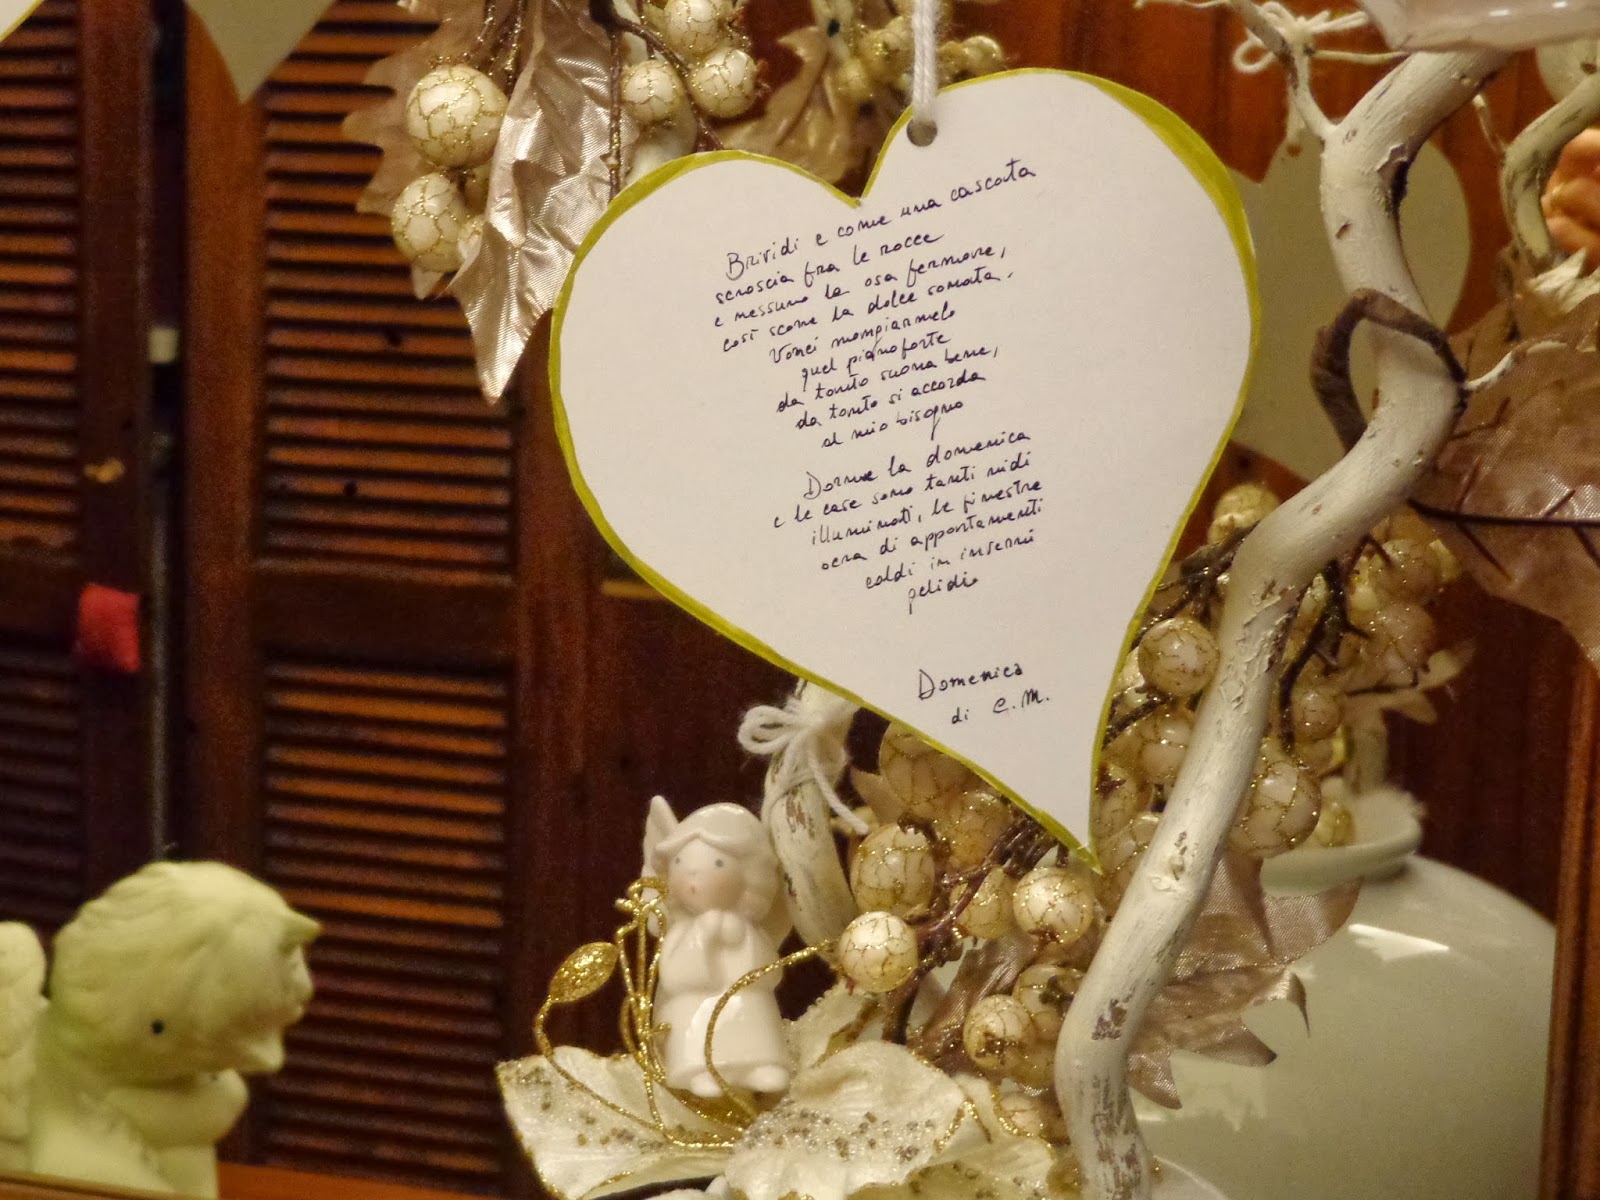 Brividi e come una cascata
scroscia fra le rocce
e nessuno la osa fermare,
così scorre la dolce sonata.
Vorrei mangiarmelo
quel pianoforte
da tanto suona bene,
da tanto si accorda
al mio bisogno
Dorme la domenica
e le case sono tanti nidi
illuminati, le finestre
cera di appostamenti
caldi in inverni
gelidi.
Domenica
di C. M.